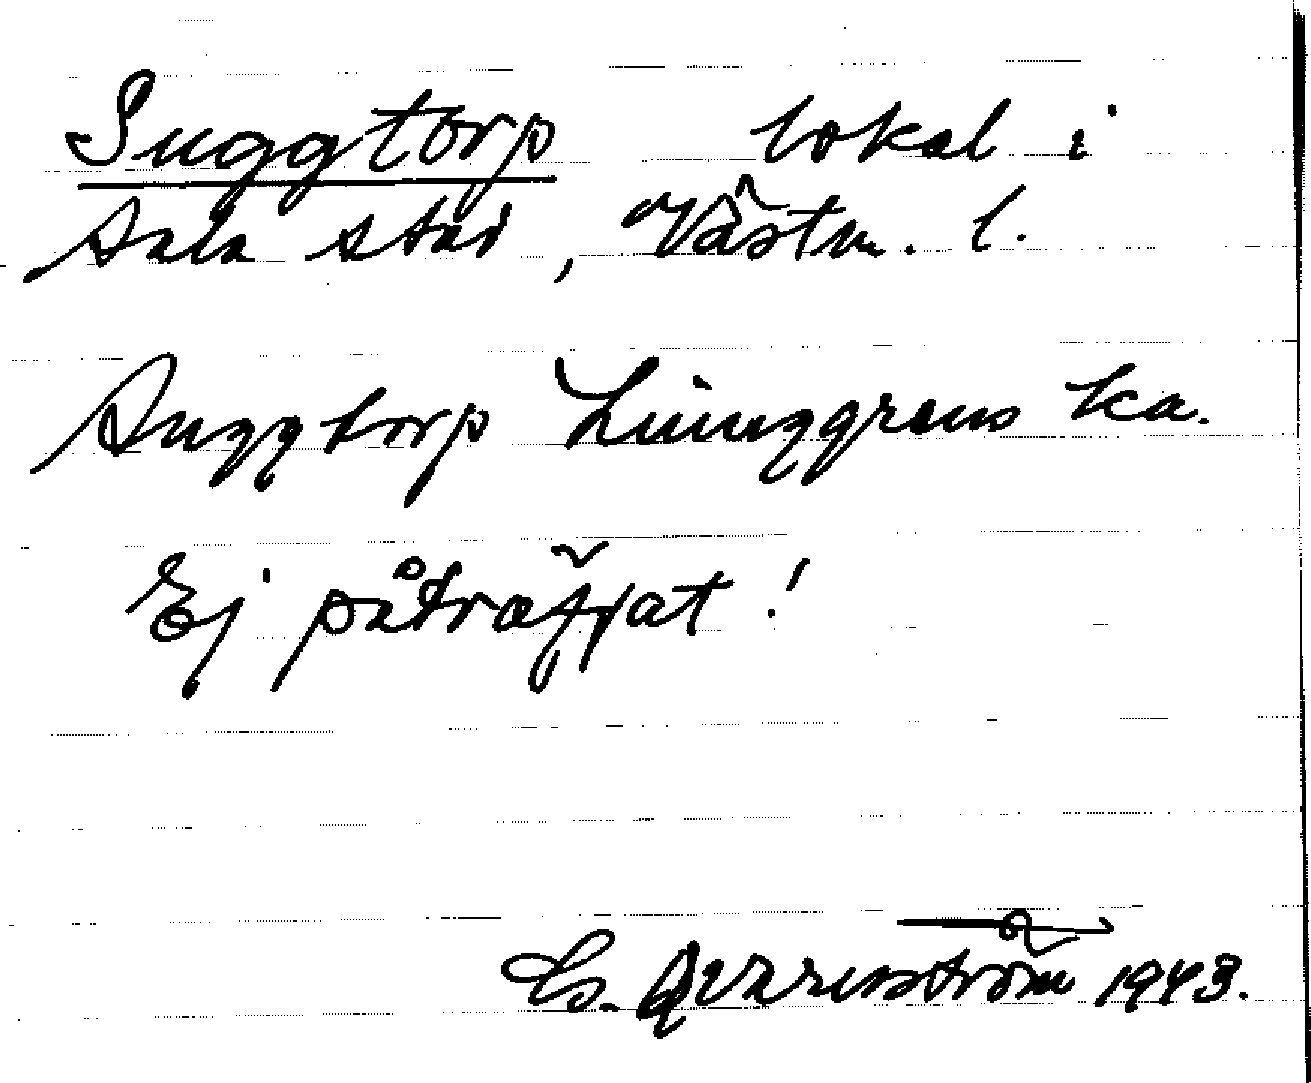 Suggtorp lokal i
Sala stad, Västm. l.
Suggtorp Ljunggrens ka.
Ej påträffat!
Qvarnström 1943.